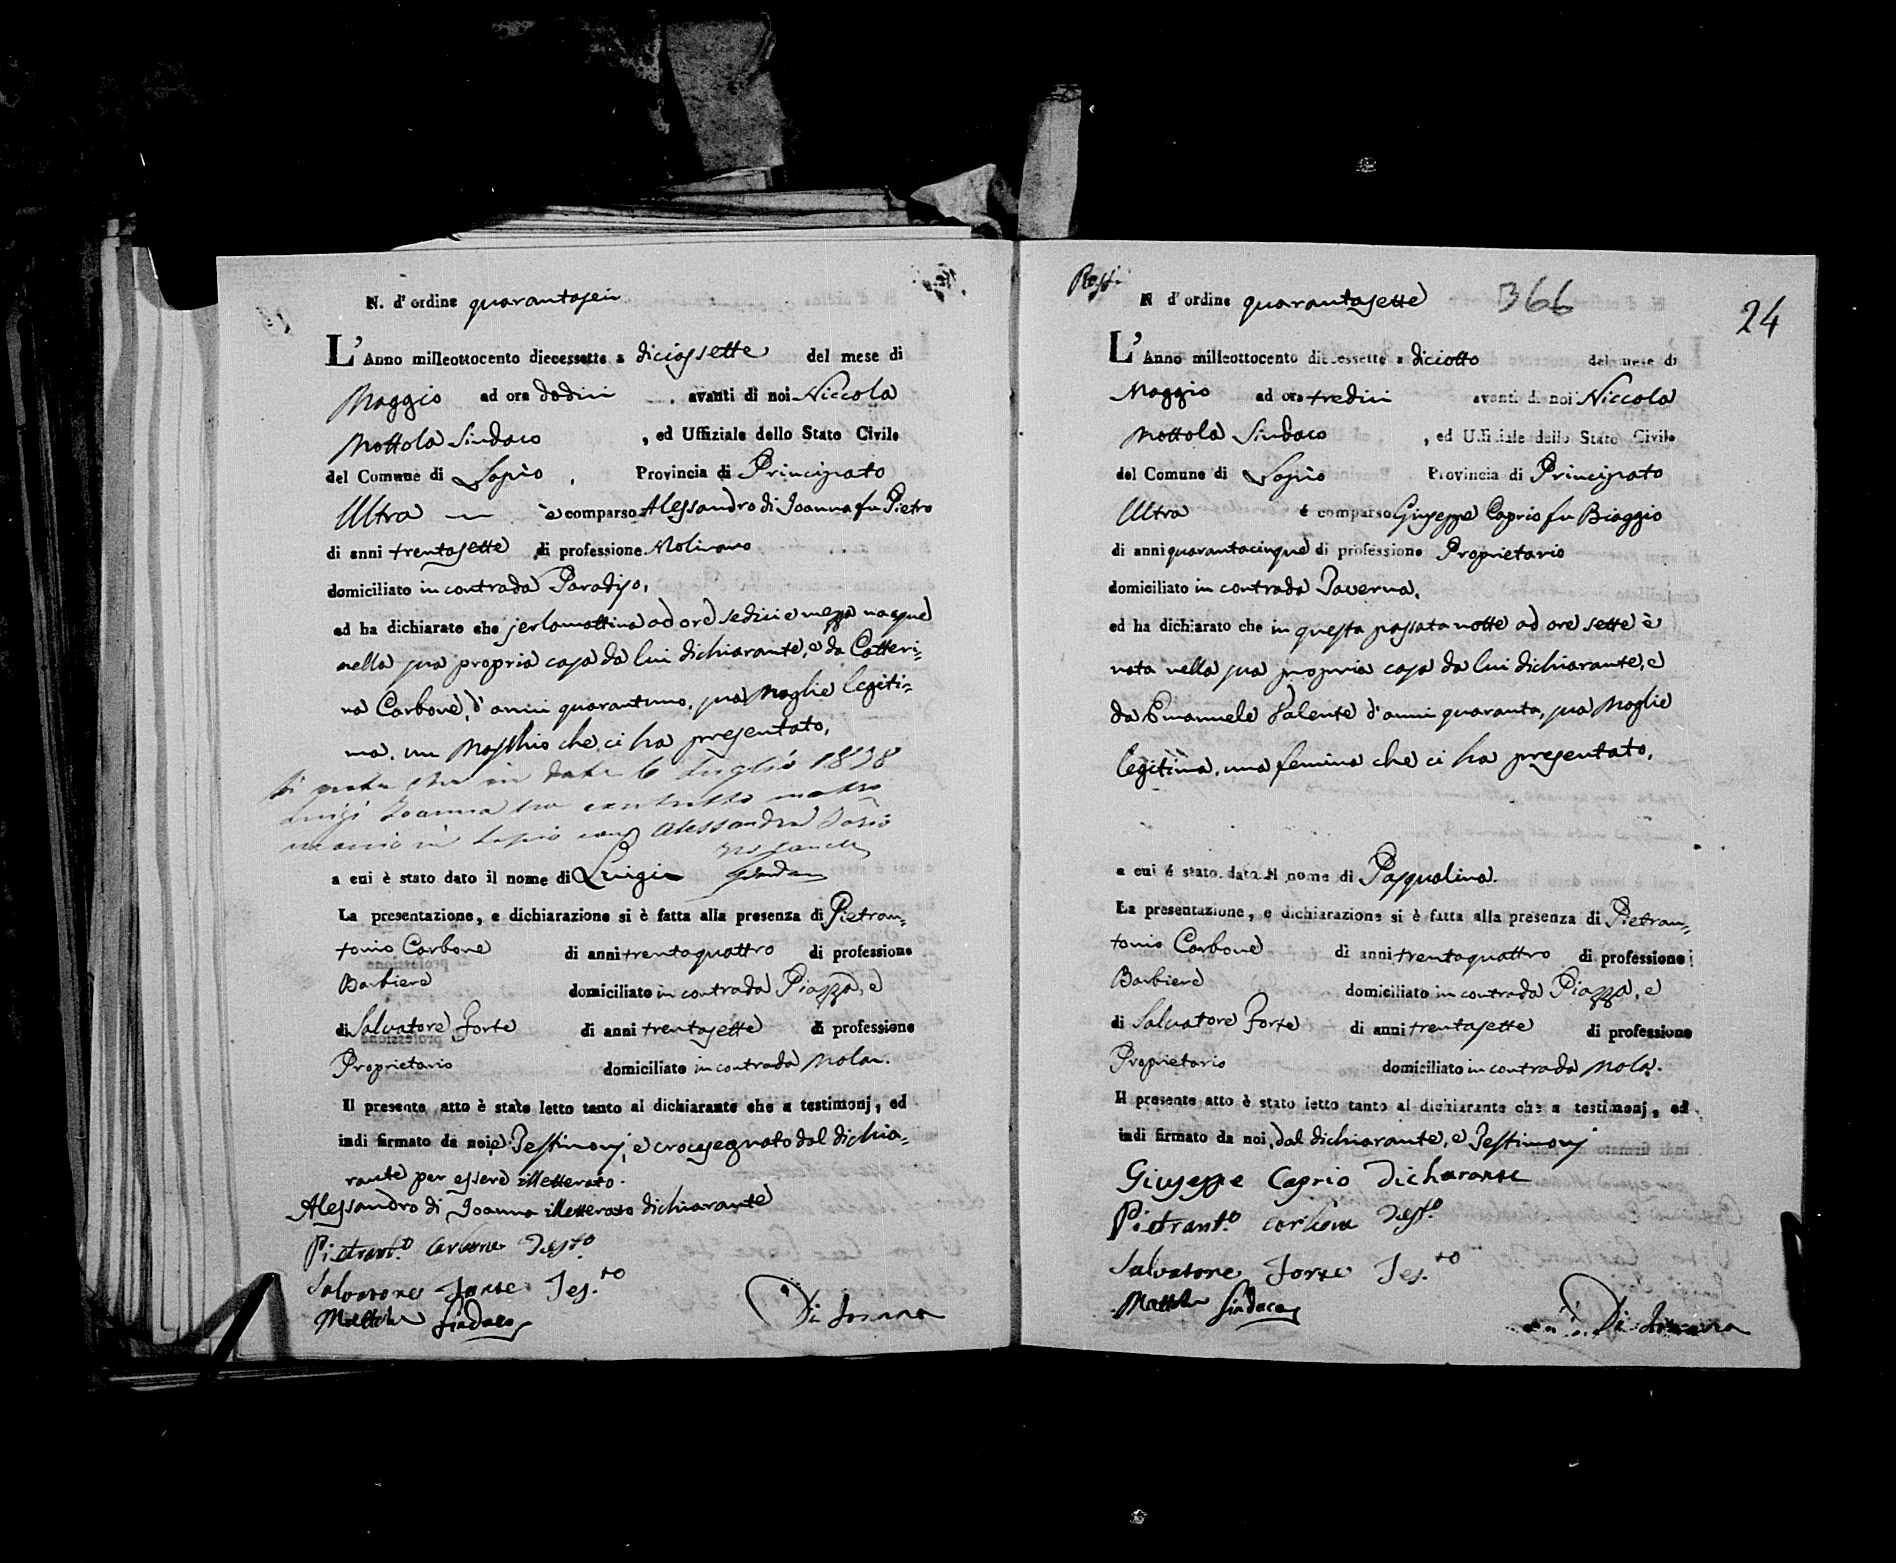 N. d'ordine quarantasei
L'Anno milleottocento diecessette a diciassette del mese di
Maggio ad ore dodici avanti di noi Niccola
Mottola Sindaco , ed Uffiziale dello Stato Civile
del Comune di Lapio , Provincia di Principato
Ultra — è comparso Alessandro di Joanna fu Pietro
di anni trentasette di professione Molinaro
domiciliato in contrada Paradiso,
ed ha dichiarato che jerlamattina ad ore sedici e mezza nacque
nella sua propria casa da lui dichiarante, e da Catteri=
na Carbone, d'anni quarantuno, sua Moglie legiti=
ma, un Maschio che ci ha presentato,
Si nota che in data 6 Luglio 1838
Luigi Joanna ha contratto matri
monio in Lapio con Alessandra
a cui è stato dato il nome di Luigi
La presentazione, e dichiarazione si è fatta alla presenza di Pietran=
tonio Carbone di anni trentaquattro di professione
Barbiere domiciliato in contrada Piazza, e
di Salvatore Forte di anni trentasette di professione
Proprietario domiciliato in contrada Mola.
Il presente atto è stato letto tanto al dichiarante che a testimonj, ed
indi firmato da noi, e Testimonj, e crocesegnato dal dichia=
rante per essere illetterato.
Alessandro di Joanna illetterato dichiarante
Pietrant.o Carbone Test.o
Salvatore Forte Tes.to
Mottola Sindaco
Di Joanna
N d'ordine quarantasette
366
24
L'Anno milleottocento diecessette a diciotto del mese di
Maggio ad ore tredici avanti di noi Niccola
Mottola Sindaco , ed Uffiziale dello Stato Civile
del Comune di Lapio Provincia di Principato
Ultra é comparso Giuseppe Caprio fu Biaggio
di anni quarantacinque di professione Proprietario
domiciliato in contrada Taverna,
ed ha dichiarato che in questa passata notte ad ore sette è
nata nella sua propria casa da lui dichiarante, e
da Emanuele Valente d'anni quaranta, sua Moglie
legitima, una femina che ci ha presentato,
a cui é stato dato il nome di Pasqualina.
La presentazione, e dichiarazione si è fatta alla presenza di Pietran=
tonio Carbone di anni trentaquattro di professione
Barbiere domiciliato in contrada Piazza, e
di Salvatore Forte di anni trentasette di professione
Proprietario domiciliato in contrada Mola.
Il presente atto è stato letto tanto al dichiarante che a testimonj, ed
indi firmato da noi, dal dichiarante, e Testimonj
Giuseppe Caprio Dicharante
Pietrant.o Carbone Test.o
Salvatore Forte Tes.to
Mottola Sindaco
Di Joanna